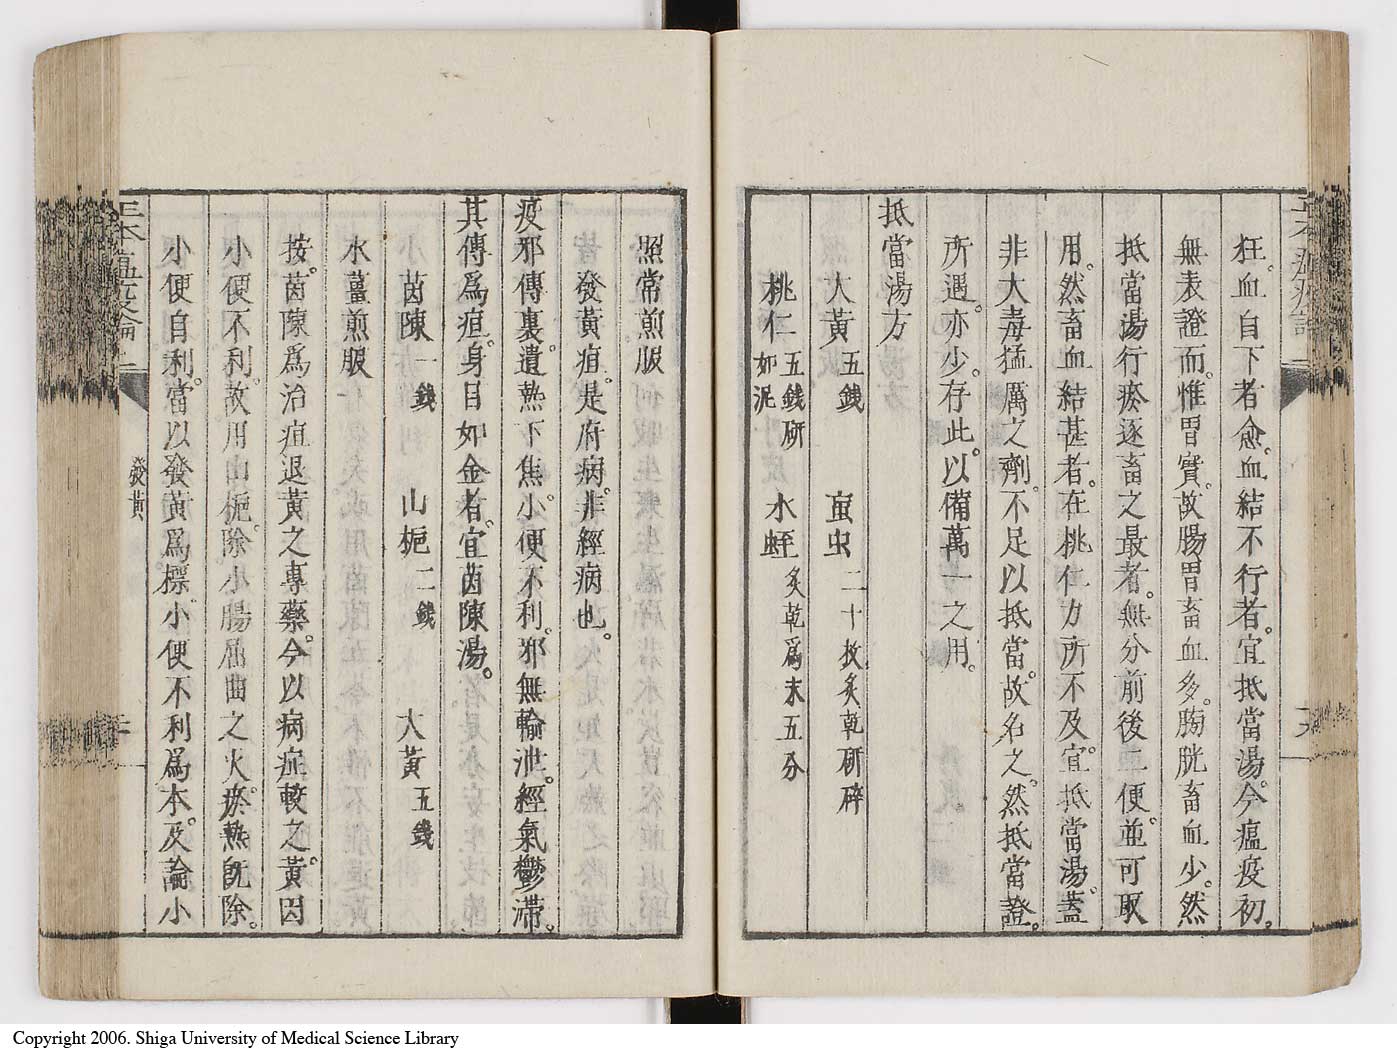 狂。血自下者愈。血結不行者。宜抵當湯。今瘟疫初。
無表證而。惟胃實。故腸胃畜血多。胸胱畜血少。然
抵當湯行瘀逐畜之最者。無分前後二便。並可取
用。然畜血結甚者。在桃仁力所不及。宜抵當湯。蓋
非大毒猛厲之劑。不足以抵當。故名之。然抵當證。
所遇。亦少。存此。以備萬一之用。
抵當湯方
大黃五錢 䖟虫二十枚炙乾研碎
桃仁五錢研如泥 水蛭炙乾爲末五分
照常煎服
發黃疸。是府病。非經病也。
疫邪傳裏。遺熱下焦。小便不利。邪無輸泄。經氣鬱滯。
其傳爲疸。身目如金者。宜茵陳湯。
茵陳一錢 山梔二錢 大黃五錢
水薑煎服
按。茵陳爲治疸退黃之專藥。今以病症較之。黃因
小便不利。故用山梔。除小腸屈曲之火。瘀熱既除。
小便自利。當以發黃爲標。小便不利爲本。及論小
發黃
Copyright 2006. Shiga University of Medical Science Library